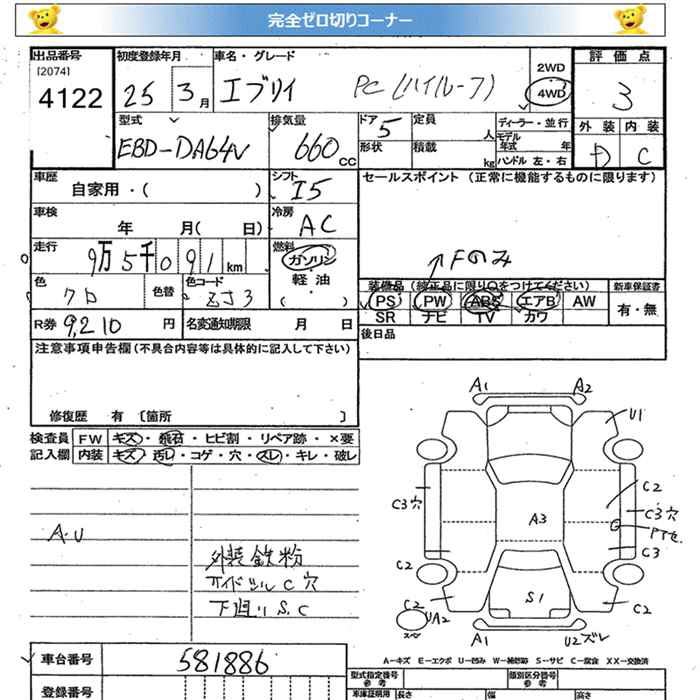 完全ゼロ切りコーナー
出品番号 初度登録年月 車名・グレード 2WD 評価点
[2074]
4122 25 3月 エブリイ PC (ハイルーフ) 4WD 3
型式 排気量 ドア 5 定員 人 ディーラー・並行 外装 内装
EBD-DA64V 660 CC 形状 積載 kg モデル年式 年 D C
ハンドル 左・右
車歴 シフト セールスポイント (正常に機能するものに限ります)
自家用・( ) I5
車検 冷房
年 月( 日) AC
走行 燃料
9万5千091km ガソリン Fのみ
色 色替 色コード 軽油 装備品(純正品に限り○をつけてください) 新車保証書
クロ ZJ3 PS PW ABS エアB AW 有・無
SR ナビ TV カワ
R券 9,210 円 名変通知期限 月 日 後日品
注意事項申告欄(不具合内容等は具体的に記入して下さい)
修復歴 有 [箇所 ]
検査員 FW キズ・飛石・ヒビ割・リペア跡・×要
記入欄 内装 キズ・汚レ・コゲ・穴・スレ・キレ・破レ
A.U
外装鉄粉
サイドシルC穴
下廻りS.C
A1 A2
U1
C2
C3穴 C3穴
A3
C3
C2
S1 C2
UA2
A1 U2ズレ
A-キズ E-エクボ U-凹み W-補修跡 S-サビ C-腐食 XX-交換済
車台番号 581886
型式指定番号 参考 類別区分番号 参考
登録番号 車庫証明用 長さ 幅 高さ